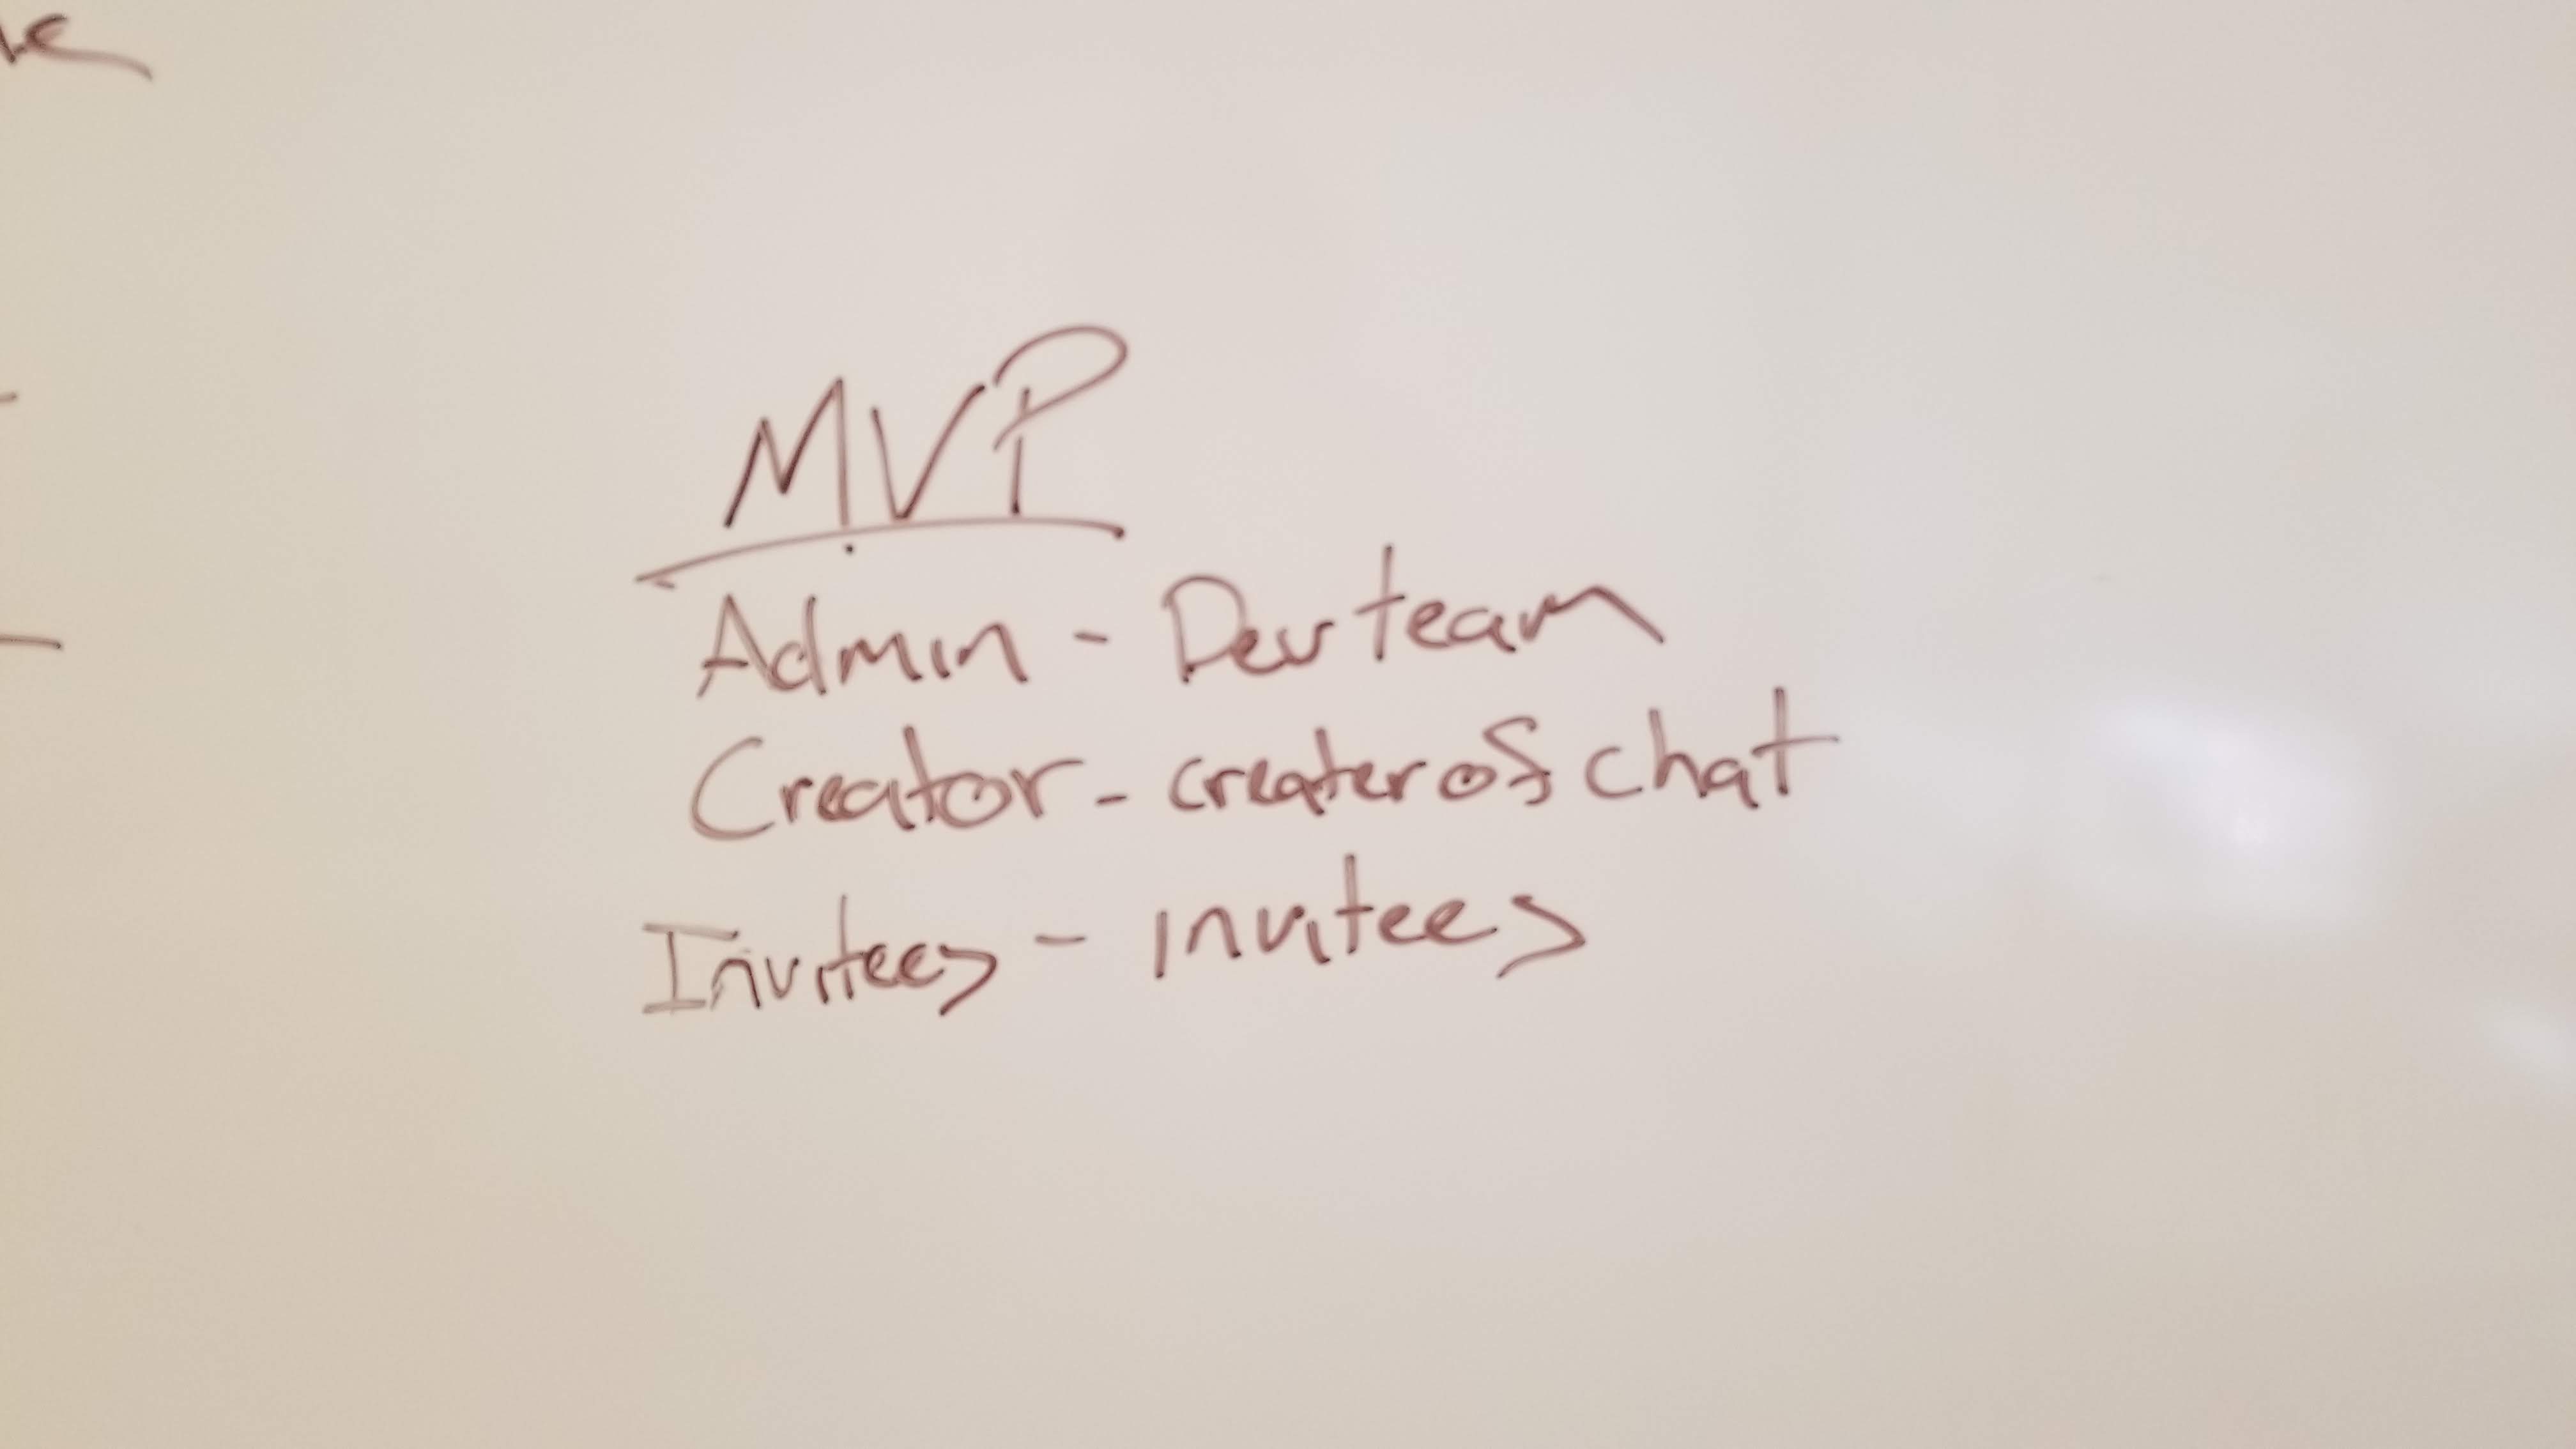 MVP
Admin - Dev team
Creator - creater of chat
Invitees - invitees